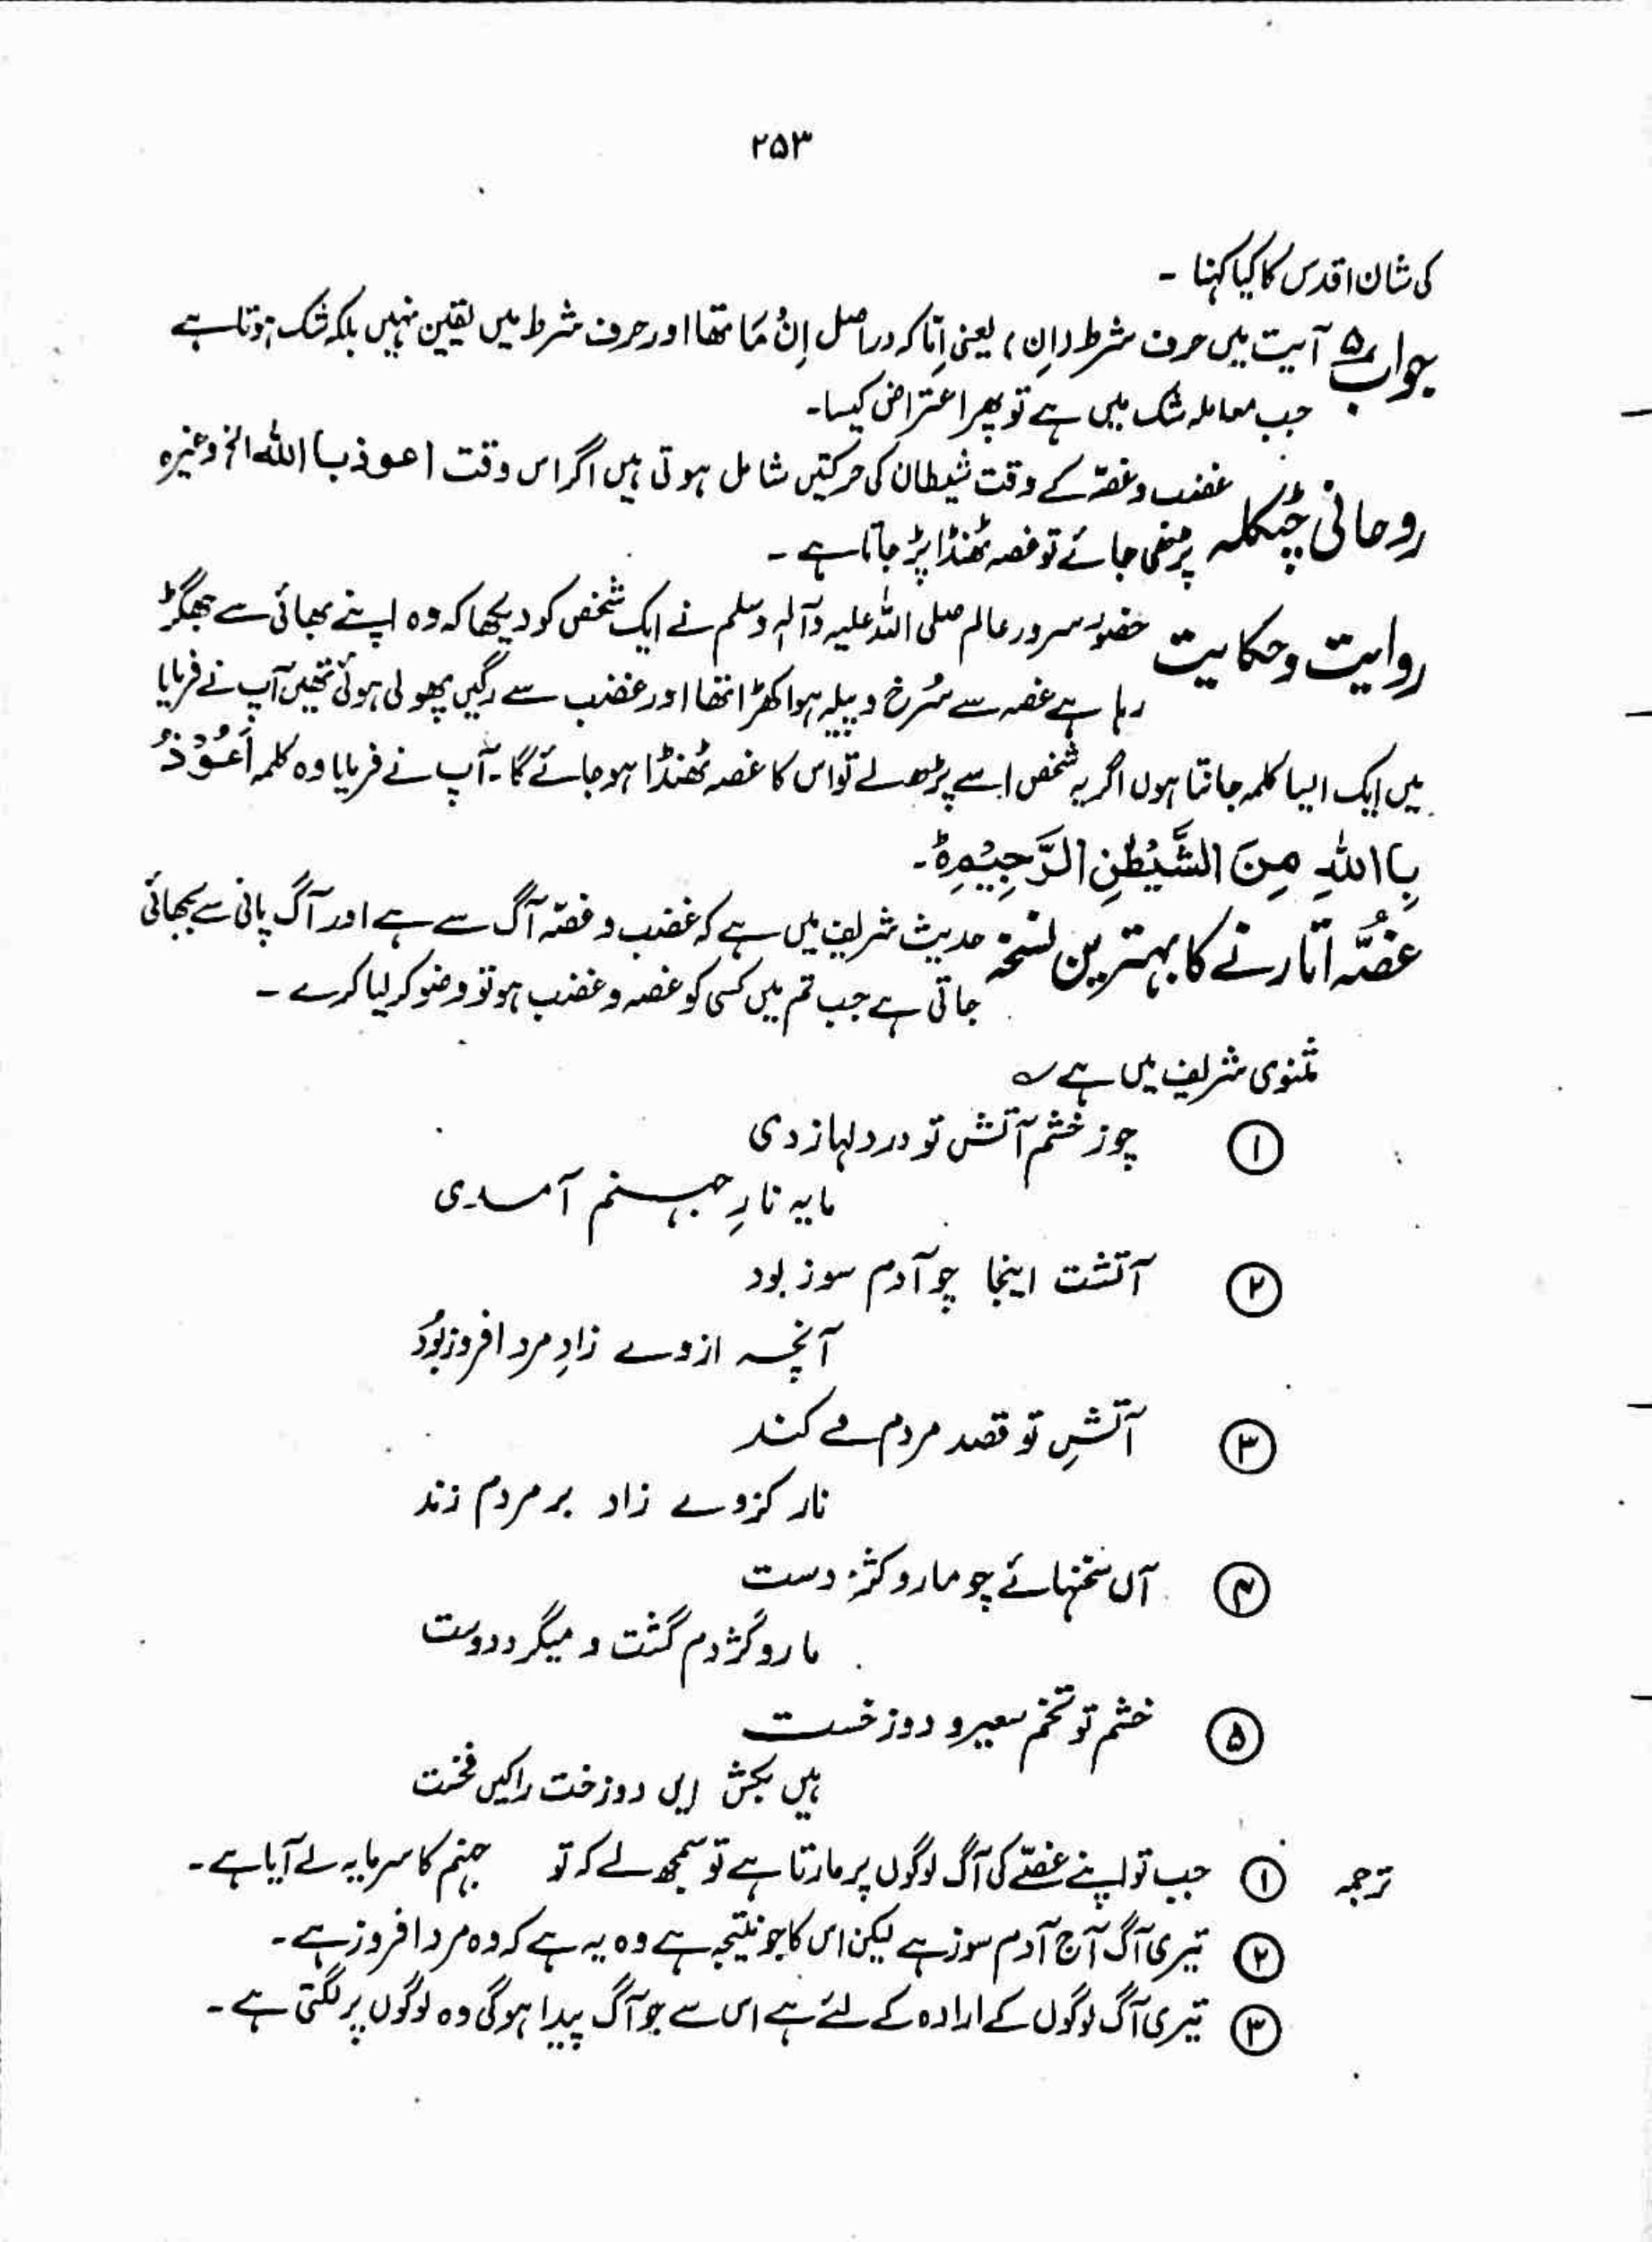 ۲۵۳
کی شان اقدس کا کیا کہنا ۔
جواب ۵ آیت میں حرف شرط (اِن) یعنی اِمّا کہ دراصل اِنْ مَا تھا اور حرف شرط میں یقین نہیں بلکہ شک ہوتا ہے
جب معاملہ شک میں ہے تو پھر اعتراض کیسا۔
روحانی چُٹکلہ غضب و غصّہ کے وقت شیطان کی حرکتیں شامل ہوتی ہیں اگر اس وقت اعوذ باا للّٰہ الخ وغیرہ
پڑھی جائے تو غصہ ٹھنڈا پڑ جاتا ہے ۔
روایت و حکایت حضور سرور عالم صلی اللہ علیہ وآلہٖ وسلم نے ایک شخص کو دیکھا کہ وہ اپنے بھائی سے جھگڑ
رہا ہے غصہ سے سُرخ و پیلہ ہوا کھڑا تھا اور غضب سے رگیں پھولی ہوئی تھیں آپ نے فرمایا
میں ایک ایسا کلمہ جانتا ہوں اگر یہ شخص اسے پڑھ لے تو اس کا غصہ ٹھنڈا ہو جائے گا۔ آپ نے فرمایا وہ کلمہ اَعُوْذُ
بِاا للّٰہِ مِنَ الشَّیْطٰنِ الرَّجِیْمِ ہ۔
غصُّہ اتارنے کا بہترین نسخہ حدیث شریف میں ہے کہ غضب و غصّہ آگ سے ہے اور آگ پانی سے بجھائی
جاتی ہے جب تم میں کسی کو غصہ و غضب ہو تو وضو کر لیا کرے ۔
مثنوی شریف میں ہے ؎
① چوز خشم آتش تو در دلہا زدی
مایہ نارِ جہنم آمدی
② آتشت اینجا چو آدم سوز بود
آنچہ ازوے زادِ مرد افروز بُوَد
③ آتشِ تو قصد مردم مے کند
نار کزوے زاد بر مردم زند
④ آں سخنہائے چو مار و کژدمت
مار و کژدم گشت و میگرد دوست
⑤ خشم تو تخم سعیر و دوزخست
ہیں بکش ایں دوزخت را کیں فخست
ترجمہ ① جب تو اپنے غصّے کی آگ لوگوں پر مارتا ہے تو سمجھ لے کہ تو جہنم کا سرمایہ لے آیا ہے۔
② تیری آگ آج آدم سوز ہے لیکن اس کا جو نتیجہ ہے وہ یہ ہے کہ وہ مرد افروز ہے۔
③ تیری آگ لوگوں کے ارادہ کے لئے ہے اس سے جو آگ پیدا ہوگی وہ لوگوں پر لگتی ہے۔